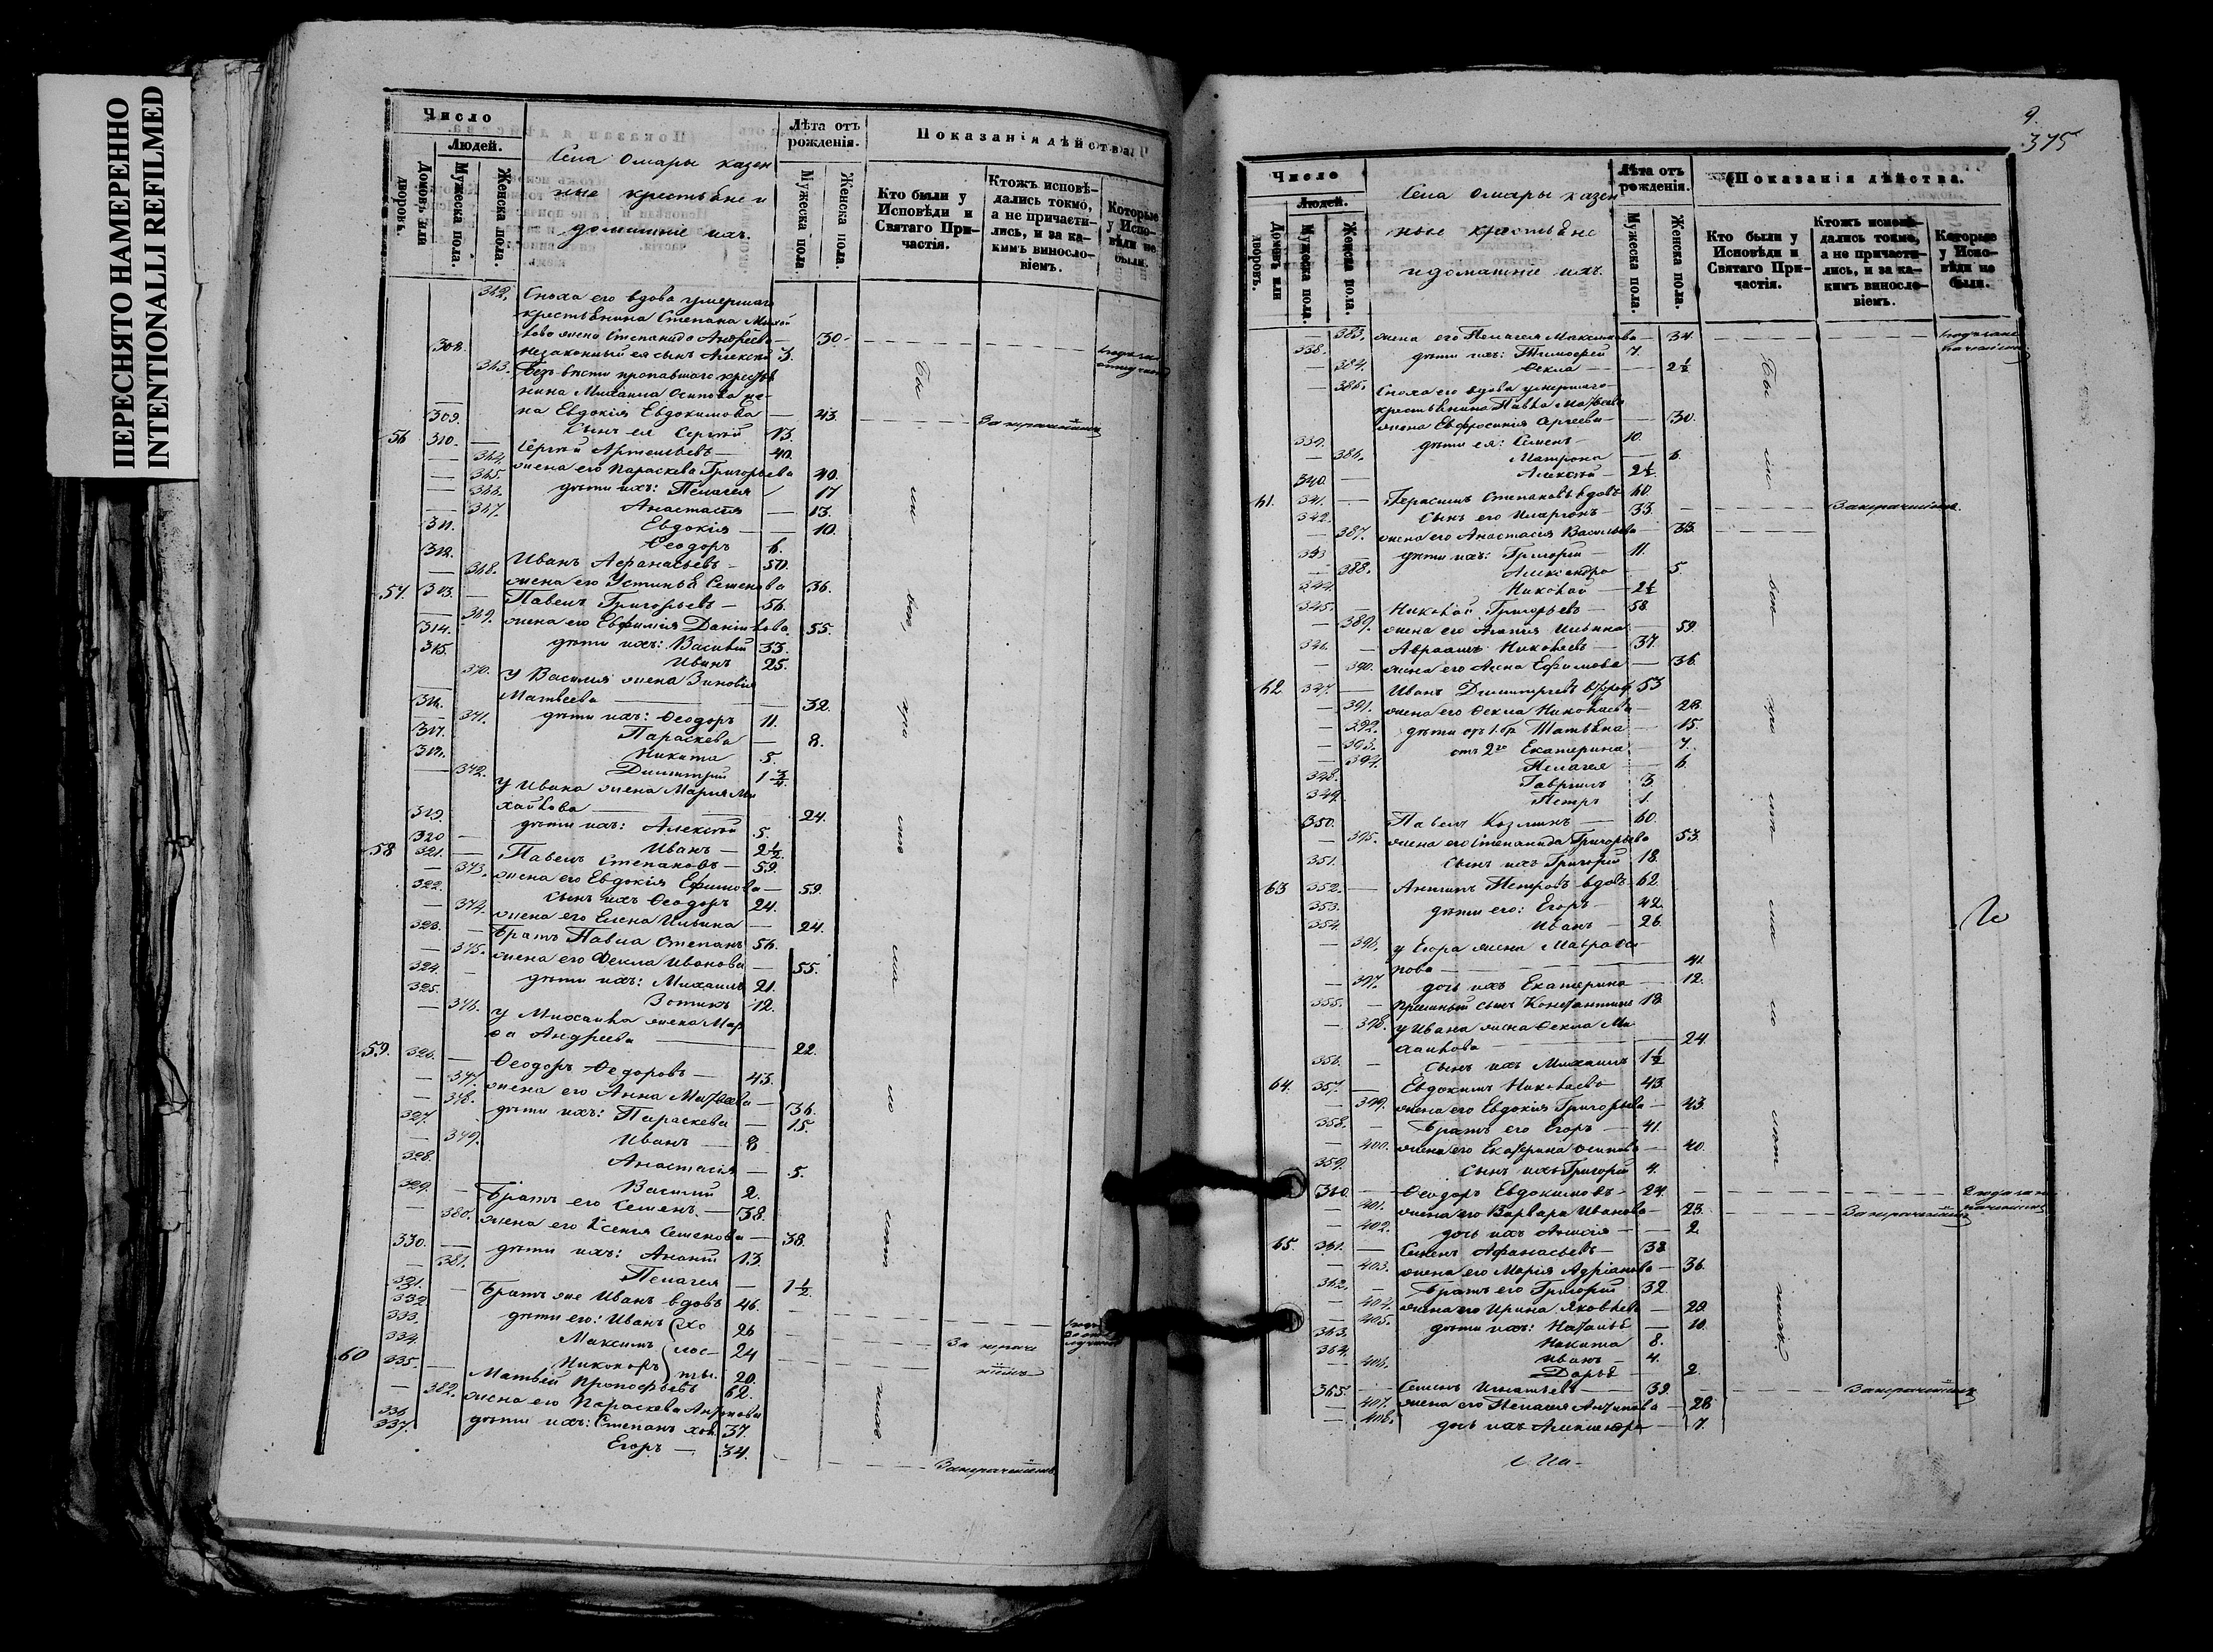 ПЕРЕСНЯТО НАМЕРЕННО
INTENTIONALLI REFILMED
Число
Людей.
Домовъ или дворовъ.
Мужеска пола.
Женска пола.
Села Омары казен
ные крестьяне и
домашніе ихъ.
Лѣта отъ рожденія.
Мужеска пола.
Женска пола.
Показанія дѣйства.
Кто были у Исповѣди и Святаго Причастія.
Ктожъ исповѣдались токмо, а не причастились, и за какимъ винословіемъ.
Которые у Исповѣди не были.
362. Сноха его вдова умершаго
крестьянина Степана Михай
лова жена Степанида Андреева — 30
308. незаконный ея сынъ Алексѣй 3.
363. Безъ вѣсти пропавшаго крестья
нина Михаила Осипова же
на Евдокія Евдокимова — 43.
309. Сынъ ея Сергѣй 13.
56 310. Сергѣй Артемьевъ — 40.
364. жена его Параскева Григорьева 40.
365. дѣти ихъ: Пелагея 17
366. Анастасія — 13.
367. Евдокія — 10.
311. Ѳеодоръ 6.
312. Иванъ Аѳанасьевъ — 50.
368. жена его Устинья Семенова 36.
57. 313. Павелъ Григорьевъ — 56.
369. жена его Евфимія Данилова 55.
314. дѣти ихъ: Василій 33.
315. Иванъ 25.
370. у Василія жена Зиновія
Матвеева — 32.
316. дѣти ихъ: Ѳеодоръ 11.
371. Параскева — 8.
317. Никита 5.
318. Димитрій 1 3/4.
372. у Ивана жена Марія Ми
хайлова — 24.
319. дѣти ихъ: Алексѣй 5.
320 Иванъ — 2 1/2.
58 321. Павелъ Степановъ — 59.
373. жена его Евдокія Ефимова — 59.
322. сынъ ихъ Ѳеодоръ 24.
374. жена его Елена Ильина — 24.
323. Братъ Павла Степанъ 56.
375. жена его Ѳекла Иванова — 55.
324. дѣти ихъ: Михаилъ 21.
325. Зотикъ 12.
376. у Михаила жена Мар
ѳа Андреева — 22.
59. 326. Ѳеодоръ Ѳедоровъ — 43.
377. жена его Анна Матвеева — 36.
378. дѣти ихъ: Параскева — 15.
327. Иванъ — 8
379. Анастасія — 5.
328. Василій 2.
329. Братъ его Семенъ — 38.
380. жена его Ксенія Семенова — 38.
330. дѣти ихъ: Ананій 13.
381. Пелагея — 1 1/2.
331. Братъ же Иванъ вдовъ 46.
332 дѣти его: Иванъ 26
333. Максимъ 24
334. Никоноръ 20.
холосты.
60 335. Матвей Прокофьевъ 62.
382. жена его Параскева
336 дѣти ихъ: Степанъ хол. 37.
337. Егоръ — 34.
9.
375
Число
Людей.
Домовъ или дворовъ.
Мужеска пола.
Женска пола.
Села Омары казен
ные крестьяне
и домашніе ихъ.
Лѣта отъ рожденія.
Мужеска пола.
Женска пола.
Показанія дѣйства.
Кто были у Исповѣди и Святаго Причастія.
Ктожъ исповѣдались токмо, а не причастились, и за какимъ винословіемъ.
Которые у Исповѣди не были.
383. жена его Пелагея Максимова — 34.
338. дѣти ихъ: Тимоѳей 7.
384. Ѳекла — 2 1/2
385. Сноха его вдова умершаго
крестьянина Павла Матвеева
жена Евфросинія Сергеева — 30.
339. дѣти ея: Семенъ — 10.
386. Матрона — 6
340. Алексѣй — 2 1/2.
61. 341. Герасимъ Степановъ вдовъ 60.
342. Сынъ его Иларіонъ — 33.
387. жена его Анастасія Васильева — 33.
343 дѣти ихъ: Григорій — 11.
388. Александра — 5.
344. Николай — 2 1/2
345. Николай Григорьевъ — 58
389. жена его Агапія Ильина — 59.
346. Авраамъ Николаевъ — 37.
390. жена его Анна Ефимова — 36.
62 347. Иванъ Димитріевъ 53
391. жена его Ѳекла Николаева — 28.
392. дѣти отъ 1. бр. Татьяна — 15.
393. отъ 2го Екатерина — 7.
394. Пелагея — 6.
348. Гавріилъ 3
349. Петръ 1.
350. Павелъ Козминъ — 60.
395. жена его Степанида Григорьева 53.
351. Сынъ ихъ Григорій 18.
63 352. Антипъ Петровъ вдовъ 62.
353. дѣти его: Егоръ — 42.
354. Иванъ — 26.
396. у Егора жена Мавра
пова — 41.
397. дочь ихъ Екатерина — 12.
355. пріемный сынъ Константинъ 18.
398. у Ивана жена Ѳекла Ми
хаилова — 24.
356. Сынъ ихъ Михаилъ 1 1/2
64. 357. Евдокимъ Николаевъ 43.
399. жена его Евдокія Григорьева — 43.
358. Братъ его Егоръ — 41.
400. жена его Екатерина Осипова — 40.
359. Сынъ ихъ Григорій 4.
360. Ѳеодоръ Евдокимовъ — 24.
401. жена его Варвара Иванова — 23.
402. дочь ихъ Анисія — 2.
65. 361. Семенъ Афанасьевъ — 38
403. жена его Марія Адріанова — 36.
362. Братъ его Григорій 32.
404. жена его Ирина Яковлева — 29.
405. дѣти ихъ: Наталья — 10.
363. Никита 8.
364. Иванъ — 4.
406. Дарья — 2.
365. Семенъ Игнатьевъ — 39.
407. жена его Пелагея — 28
408. дочь ихъ Александра — 7.